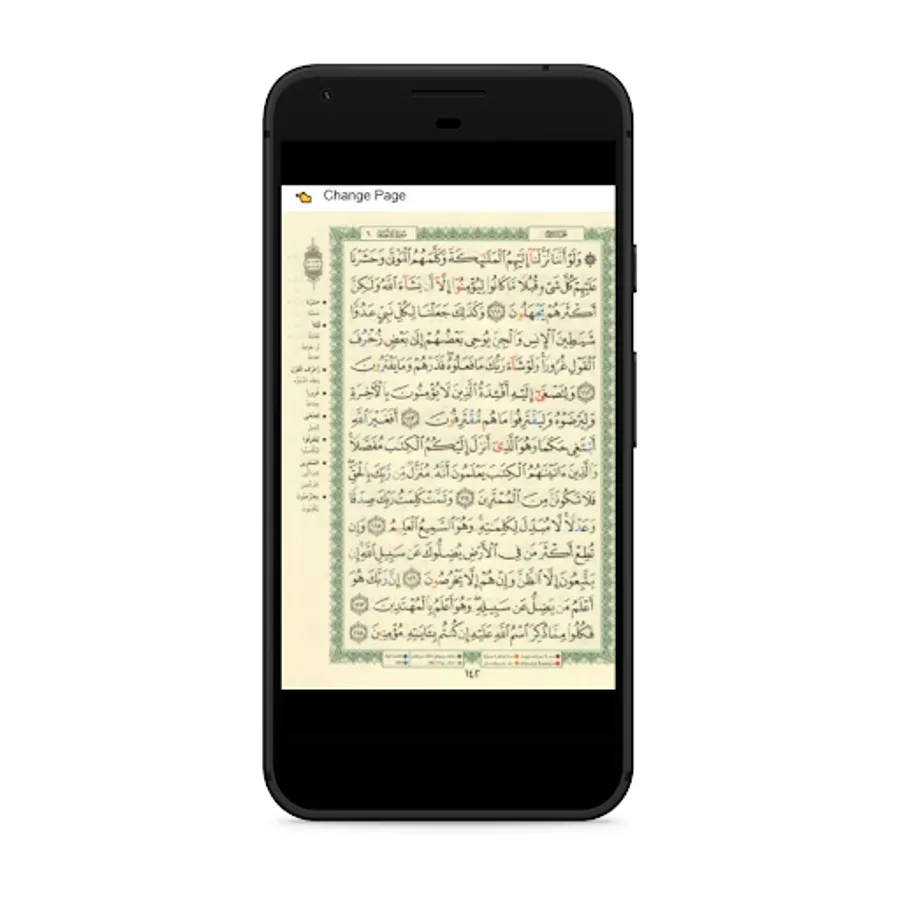 Change Page
۞ وَلَوْ أَنَّنَا نَزَّلْنَا إِلَيْهِمُ الْمَلَٰٓئِكَةَ وَكَلَّمَهُمُ الْمَوْتَىٰ وَحَشَرْنَا
عَلَيْهِمْ كُلَّ شَيْءٍ قُبُلًا مَّا كَانُوا لِيُؤْمِنُوٓا إِلَّآ أَن يَشَآءَ اللَّهُ وَلَٰكِنَّ
أَكْثَرَهُمْ يَجْهَلُونَ ١١١ وَكَذَٰلِكَ جَعَلْنَا لِكُلِّ نَبِيٍّ عَدُوًّا
شَيَٰطِينَ الْإِنسِ وَالْجِنِّ يُوحِي بَعْضُهُمْ إِلَىٰ بَعْضٍ زُخْرُفَ
الْقَوْلِ غُرُورًا وَلَوْ شَآءَ رَبُّكَ مَا فَعَلُوهُ فَذَرْهُمْ وَمَا يَفْتَرُونَ
١١٢ وَلِتَصْغَىٰٓ إِلَيْهِ أَفْـِٔدَةُ الَّذِينَ لَا يُؤْمِنُونَ بِالْءَاخِرَةِ
وَلِيَرْضَوْهُ وَلِيَقْتَرِفُوا مَا هُم مُّقْتَرِفُونَ ١١٣ أَفَغَيْرَ اللَّهِ
أَبْتَغِي حَكَمًا وَهُوَ الَّذِيٓ أَنزَلَ إِلَيْكُمُ الْكِتَٰبَ مُفَصَّلًا
وَالَّذِينَ ءَاتَيْنَٰهُمُ الْكِتَٰبَ يَعْلَمُونَ أَنَّهُۥ مُنَزَّلٌ مِّن رَّبِّكَ بِالْحَقِّ
فَلَا تَكُونَنَّ مِنَ الْمُمْتَرِينَ ١١٤ وَتَمَّتْ كَلِمَتُ رَبِّكَ صِدْقًا
وَعَدْلًا لَّا مُبَدِّلَ لِكَلِمَٰتِهِۦ وَهُوَ السَّمِيعُ الْعَلِيمُ ١١٥ وَإِن
تُطِعْ أَكْثَرَ مَن فِي الْأَرْضِ يُضِلُّوكَ عَن سَبِيلِ اللَّهِ إِن
يَتَّبِعُونَ إِلَّا الظَّنَّ وَإِنْ هُمْ إِلَّا يَخْرُصُونَ ١١٦ إِنَّ رَبَّكَ هُوَ
أَعْلَمُ مَن يَضِلُّ عَن سَبِيلِهِۦ وَهُوَ أَعْلَمُ بِالْمُهْتَدِينَ ١١٧
فَكُلُوا مِمَّا ذُكِرَ اسْمُ اللَّهِ عَلَيْهِ إِن كُنتُم بِـَٔايَٰتِهِۦ مُؤْمِنِينَ ١١٨
١٤٢